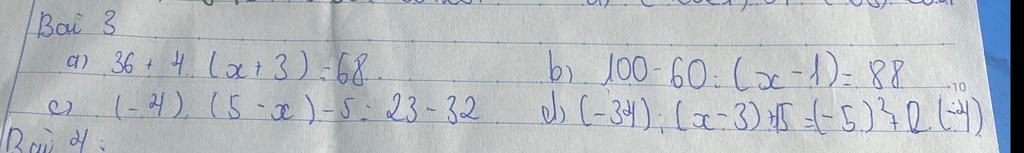 Bài 3
a) 36 + 4 . (x + 3) = 68 b) 100 - 60 : (x - 1) = 88
c) (-4) . (5 - x) - 5 = 23 - 32 d) (-34) : (x - 3) + 15 = (-5)² + 2 . (-4)
Bài 4 :